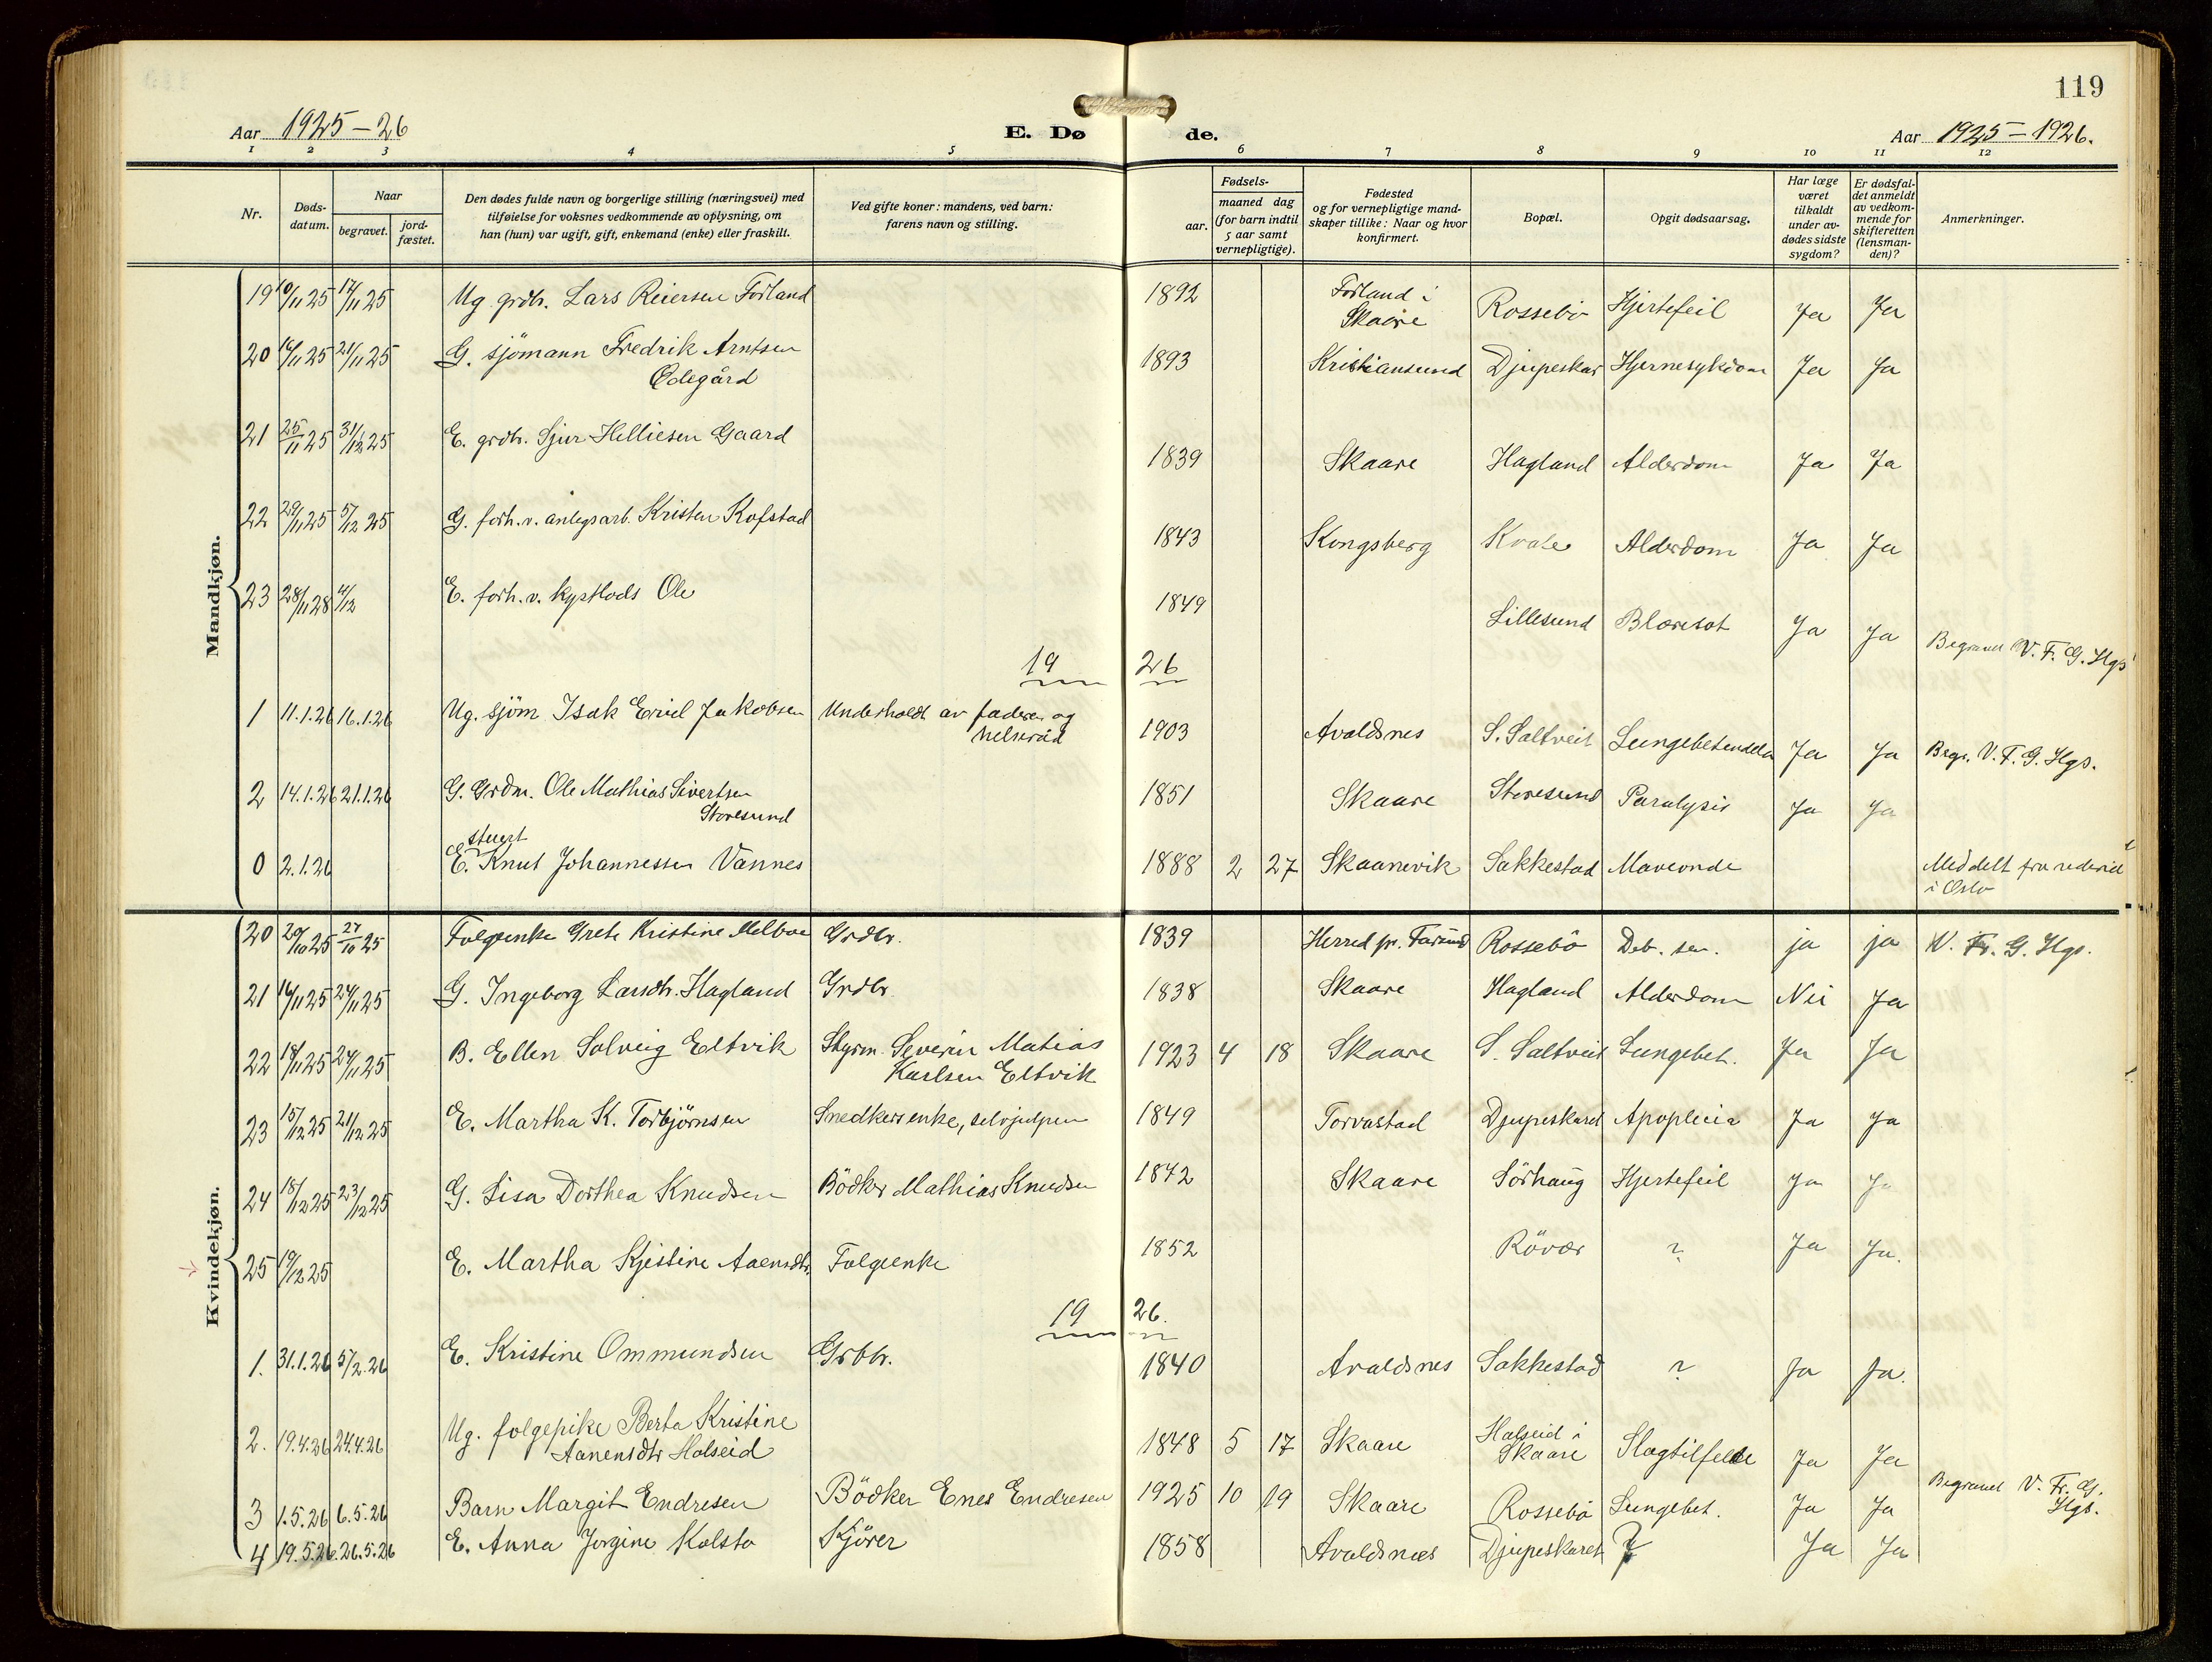 119
Aar 1925-26
E. Dø de.
Aar 1925-1926.
1 2 3 4 5 6 7 8 9 10 11 12
Nr.
Døds-
datum.
Naar
begravet.
jord-
fæstet.
Den dødes fulde navn og borgerlige stilling (næringsvei) med
tilføielse for voksnes vedkommende av oplysning, om
han (hun) var ugift, gift, enkemand (enke) eller fraskilt.
Ved gifte koner: mandens, ved barn:
farens navn og stilling.
Fødsels-
aar.
maaned dag
(for barn indtil
5 aar samt
vernepligtige).
Fødested
og for vernepligtige mand-
skaper tillike: Naar og hvor
konfirmert.
Bopæl.
Opgit dødsaarsag.
Har læge
været
tilkaldt
under av-
dødes sidste
sygdom?
Er dødsfal-
det anmeldt
av vedkom-
mende for
skifteretten
(lensman-
den)?
Anmerkninger.
Mandkjøn.
19 10/11 25 17/11 25 Ug. grdbr. Lars Reiersen Forland 1892 Forland i Skaare Rossebö Hjertefeil Ja Ja
20 16/11 25 21/11 25 G. sjömann Fredrik Arntsen Ödegård 1893 Kristiansund Djupeskar Hjernesykdom Ja Ja
21 25/11 25 31/12 25 E. grdbr. Sjur Helliesen Gaard 1839 Skaare Hagland Alderdom Ja Ja
22 29/11 25 5/12 25 G. forh. v. anlegsarb. Kristen Kofstad 1843 Kongsberg Kvale Alderdom Ja Ja
23 28/11 28 4/12 E. forh. v. kystlods Ole 1849 Lillesund Blæresot Ja Ja Begravet V. F. G. Hgs
19 26
1 11.1.26 16.1.26 Ug. sjöm Isak Ervil Jakobsen Underholdt av faderen og helseråd 1903 Avaldsnes S. Saltveit Lungebetendelse Ja Ja Begr. V. F. G. Hgs.
2 14.1.26 21.1.26 G. Grdm. Ole Mathias Sivertsen Storesund 1851 Skaare Storesund Paralysis Ja Ja
0 2.1.26 E. stuert Knut Johannessen Vannes 1888 2 27 Skaanevik Sakkestad Mavevonde Meddelt fra rederiet i Oslo
Kvindekjøn.
20 20/10 25 27/10 25 Folgeenke Grete Kristine Melboe Grdbr. 1839 Herred pr. Farsund Rossebö Deb. sen. ja ja V. Fr. G. Hgs.
21 16/11 25 24/11 25 G. Ingeborg Larsdtr. Hagland Grdbr. 1838 Skaare Hagland Alderdom Nei Ja
22 18/11 25 24/11 25 B. Ellen Solveig Eltvik Styrm. Severin Matias Karlsen Eltvik 1923 4 18 Skaare S. Saltveit Lungebet. Ja Ja
23 15/12 25 21/12 25 E. Martha K. Torbjörnsen Snedkersenke, selvhjulpen 1849 Torvastad Djupeskard Apoplexia Ja Ja
24 18/12 25 23/12 25 G. Lisa Dorthea Knudsen Bödker Mathias Knudsen 1842 Skaare Sörhaug Hjertefeil Ja Ja
25 19/12 25 E. Martha Kjestine Aaensdtr. Folgeenke 1852 Rövær ? Ja Ja.
19 26.
1. 31.1.26 5/2.26 E. Kristine Ommundsen Grbbr. 1840 Avaldsnes Sakkestad ? Ja Ja.
2. 19.4.26 24.4.26 Ug. folgepike Berta Kristine Aanensdtr Halseid 1848 5 17 Skaare Halseid i Skaare Slagtilfelde Ja Ja
3 1.5.26 6.5.26 Barn Margit Endresen Bödker Enes Endresen 1925 10 19 Skaare Rossebö Lungebet. Ja Ja Begravet V. Fr. G. Hgs.
4 19.5.26. 26.5.26 E. Anna Jorgine Kolstø Kjörer 1858 Avaldsnes Djupeskaret ? Ja Ja